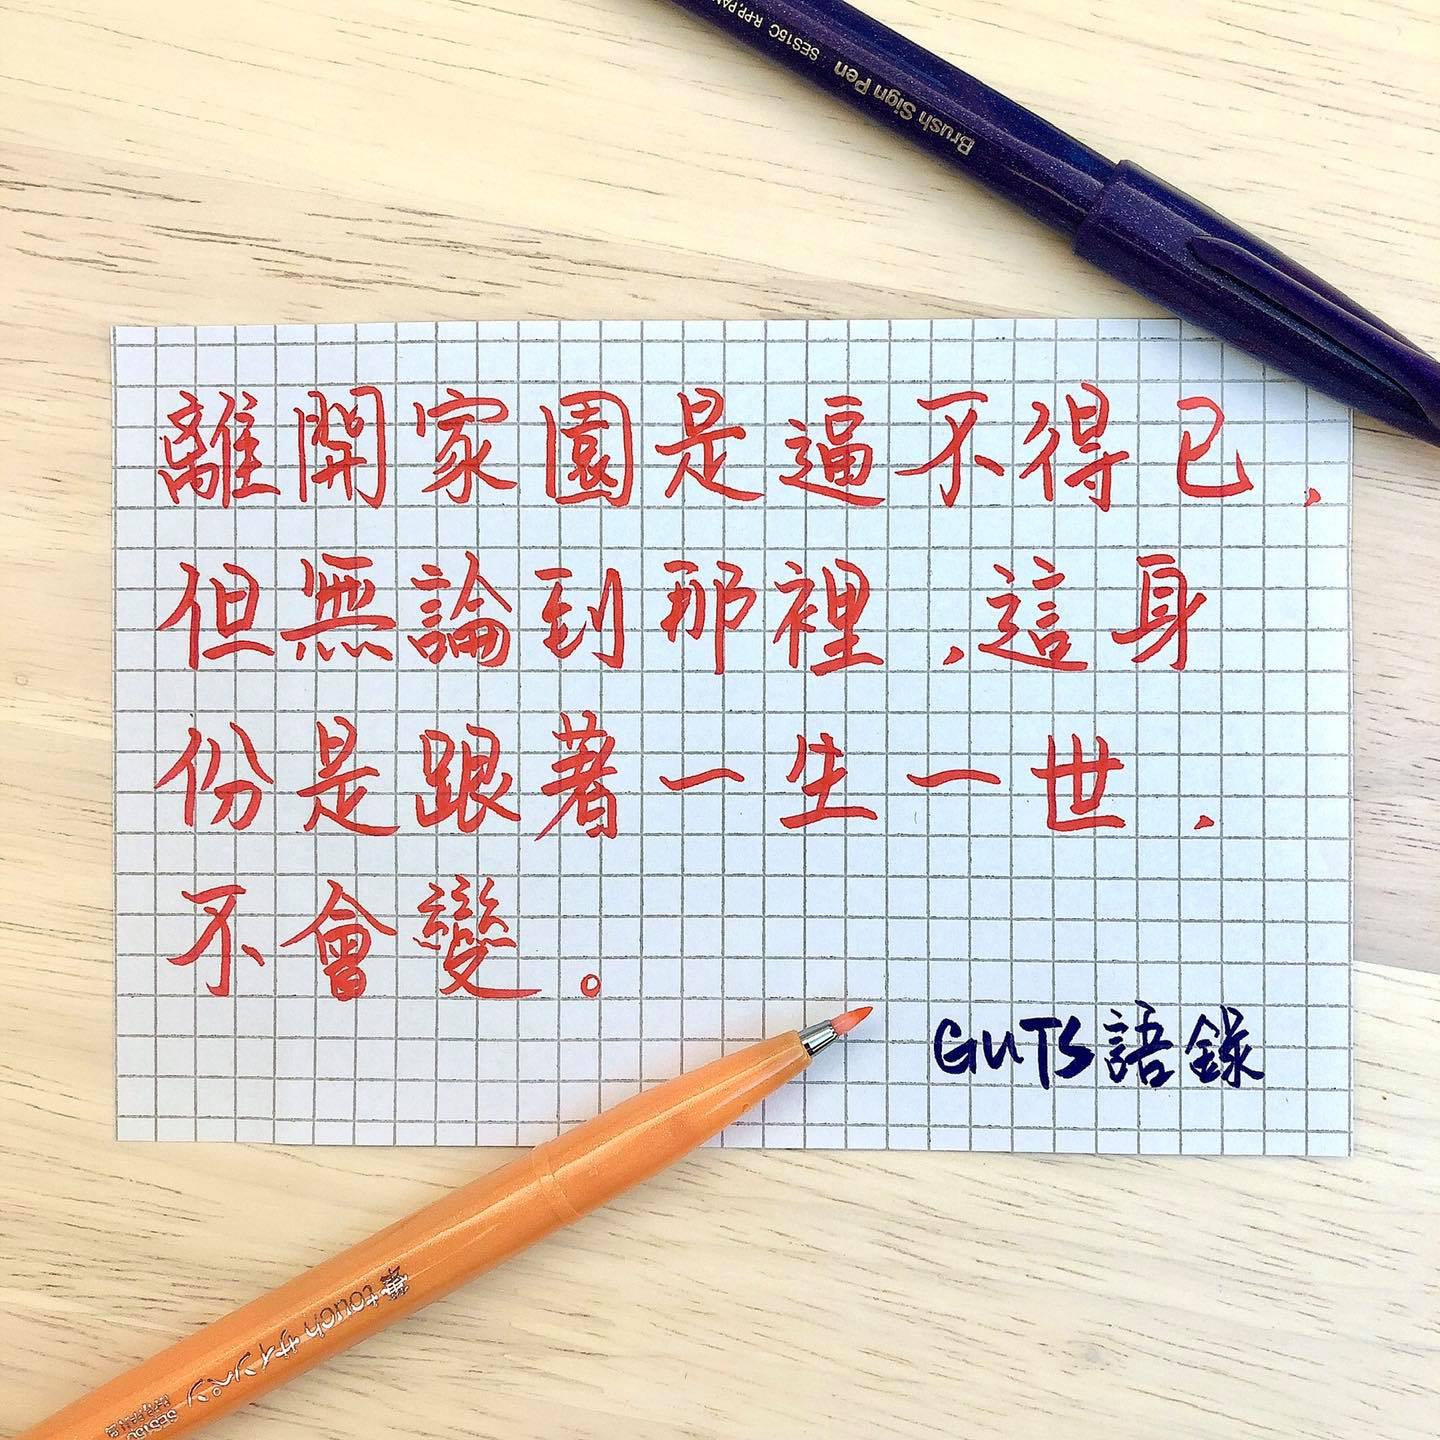 SES15C R.P.P.PAN
Brush Sign Pen
離開家園是逼不得已，
但無論到那裡，這身
份是跟著一生一世，
不會變。
GUTS語錄
筆touchサインペン
SES15C